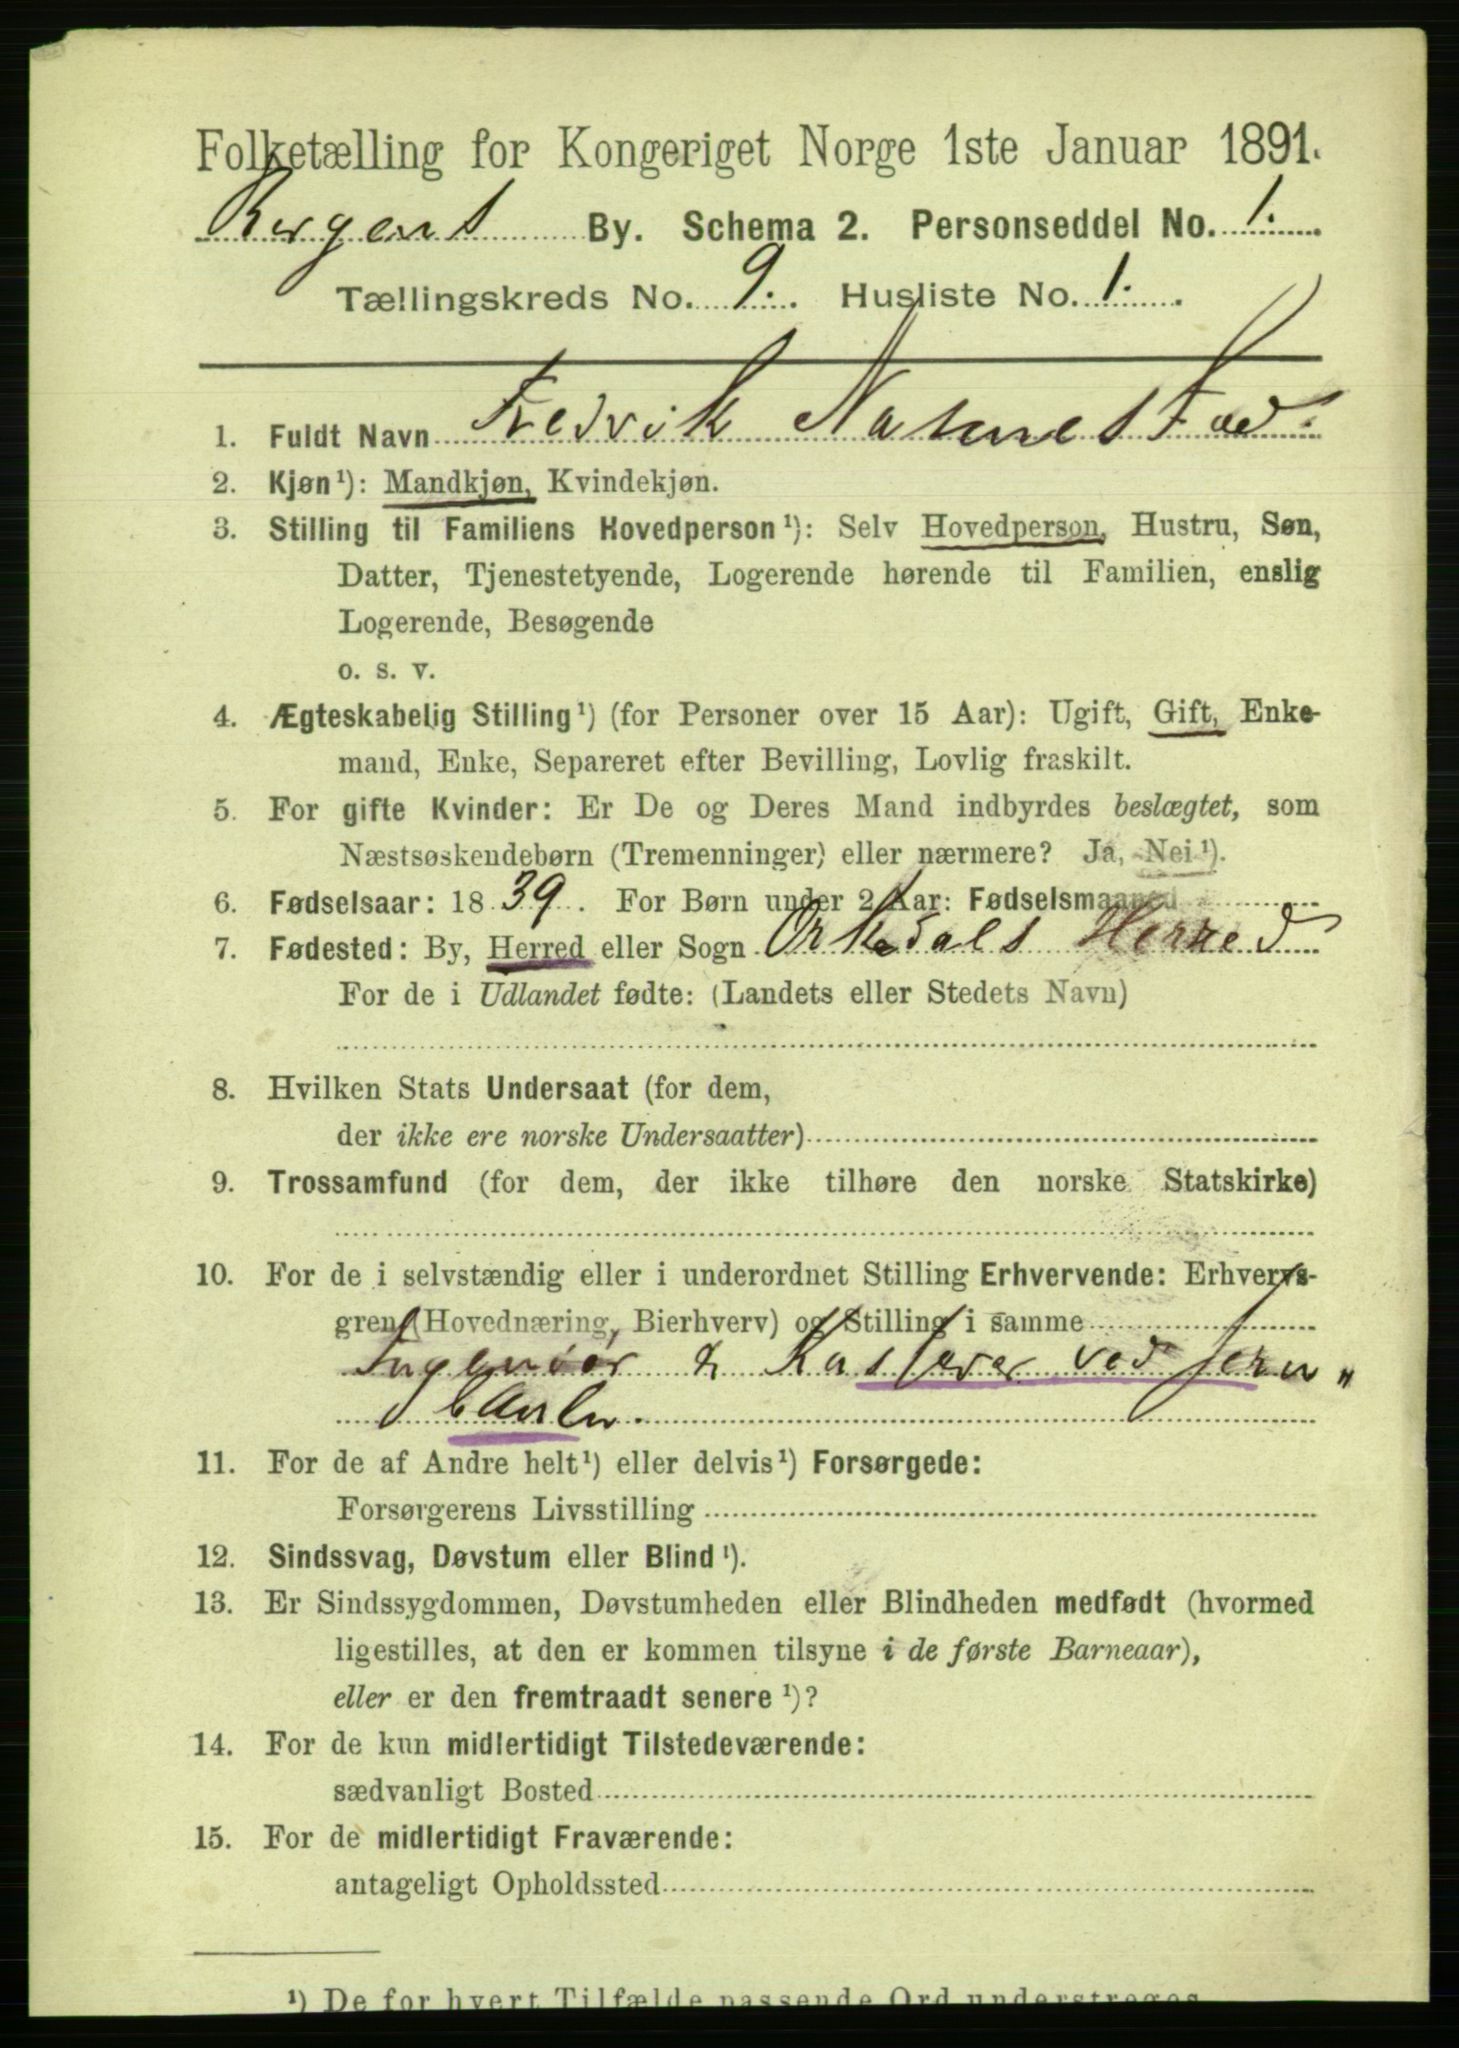 Folketælling for Kongeriget Norge 1ste Januar 1891.
Bergens By. Schema 2. Personseddel No. 1.
Tællingskreds No. 9. Husliste No. 1.
1. Fuldt Navn Fredrik
2. Kjøn¹): Mandkjøn, Kvindekjøn.
3. Stilling til Familiens Hovedperson¹): Selv Hovedperson, Hustru, Søn,
Datter, Tjenestetyende, Logerende hørende til Familien, enslig
Logerende, Besøgende
o. s. v.
4. Ægteskabelig Stilling¹) (for Personer over 15 Aar): Ugift, Gift, Enke-
mand, Enke, Separeret efter Bevilling, Lovlig fraskilt.
5. For gifte Kvinder: Er De og Deres Mand indbyrdes beslægtet, som
Næstsøskendebørn (Tremenninger) eller nærmere? Ja, Nei¹).
6. Fødselsaar: 1839. For Børn under 2 Aar: Fødselsmaaned
7. Fødested: By, Herred eller Sogn Orkedals Herred
For de i Udlandet fødte: (Landets eller Stedets Navn)
8. Hvilken Stats Undersaat (for dem,
der ikke ere norske Undersaatter)
9. Trossamfund (for dem, der ikke tilhøre den norske Statskirke)
10. For de i selvstændig eller i underordnet Stilling Erhvervende: Erhvervs-
gren (Hovednæring, Bierhverv) og Stilling i samme
Ingeniør & Kasserer ved Jern„
11. For de af Andre helt¹) eller delvis¹) Forsørgede:
Forsørgerens Livsstilling
12. Sindssvag, Døvstum eller Blind¹).
13. Er Sindssygdommen, Døvstumheden eller Blindheden medfødt (hvormed
ligestilles, at den er kommen tilsyne i de første Barneaar),
eller er den fremtraadt senere¹)?
14. For de kun midlertidigt Tilstedeværende:
sædvanligt Bosted
15. For de midlertidigt Fraværende:
antageligt Opholdssted
¹) De for hvert Tilfælde passende Ord understreges